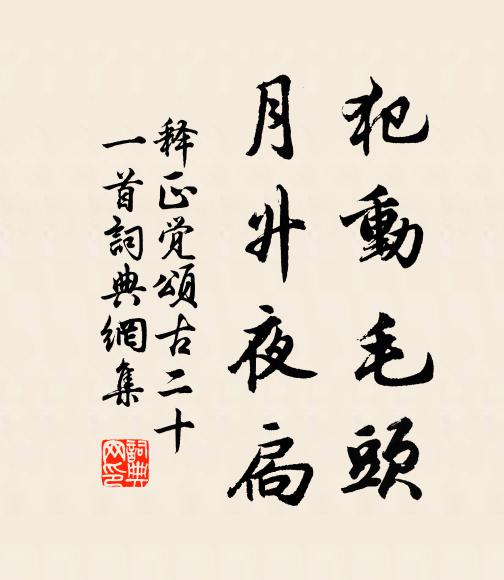 犯動毛頭
月升夜扃
释正觉頌古二十
一首詞典網集
詞典
网印